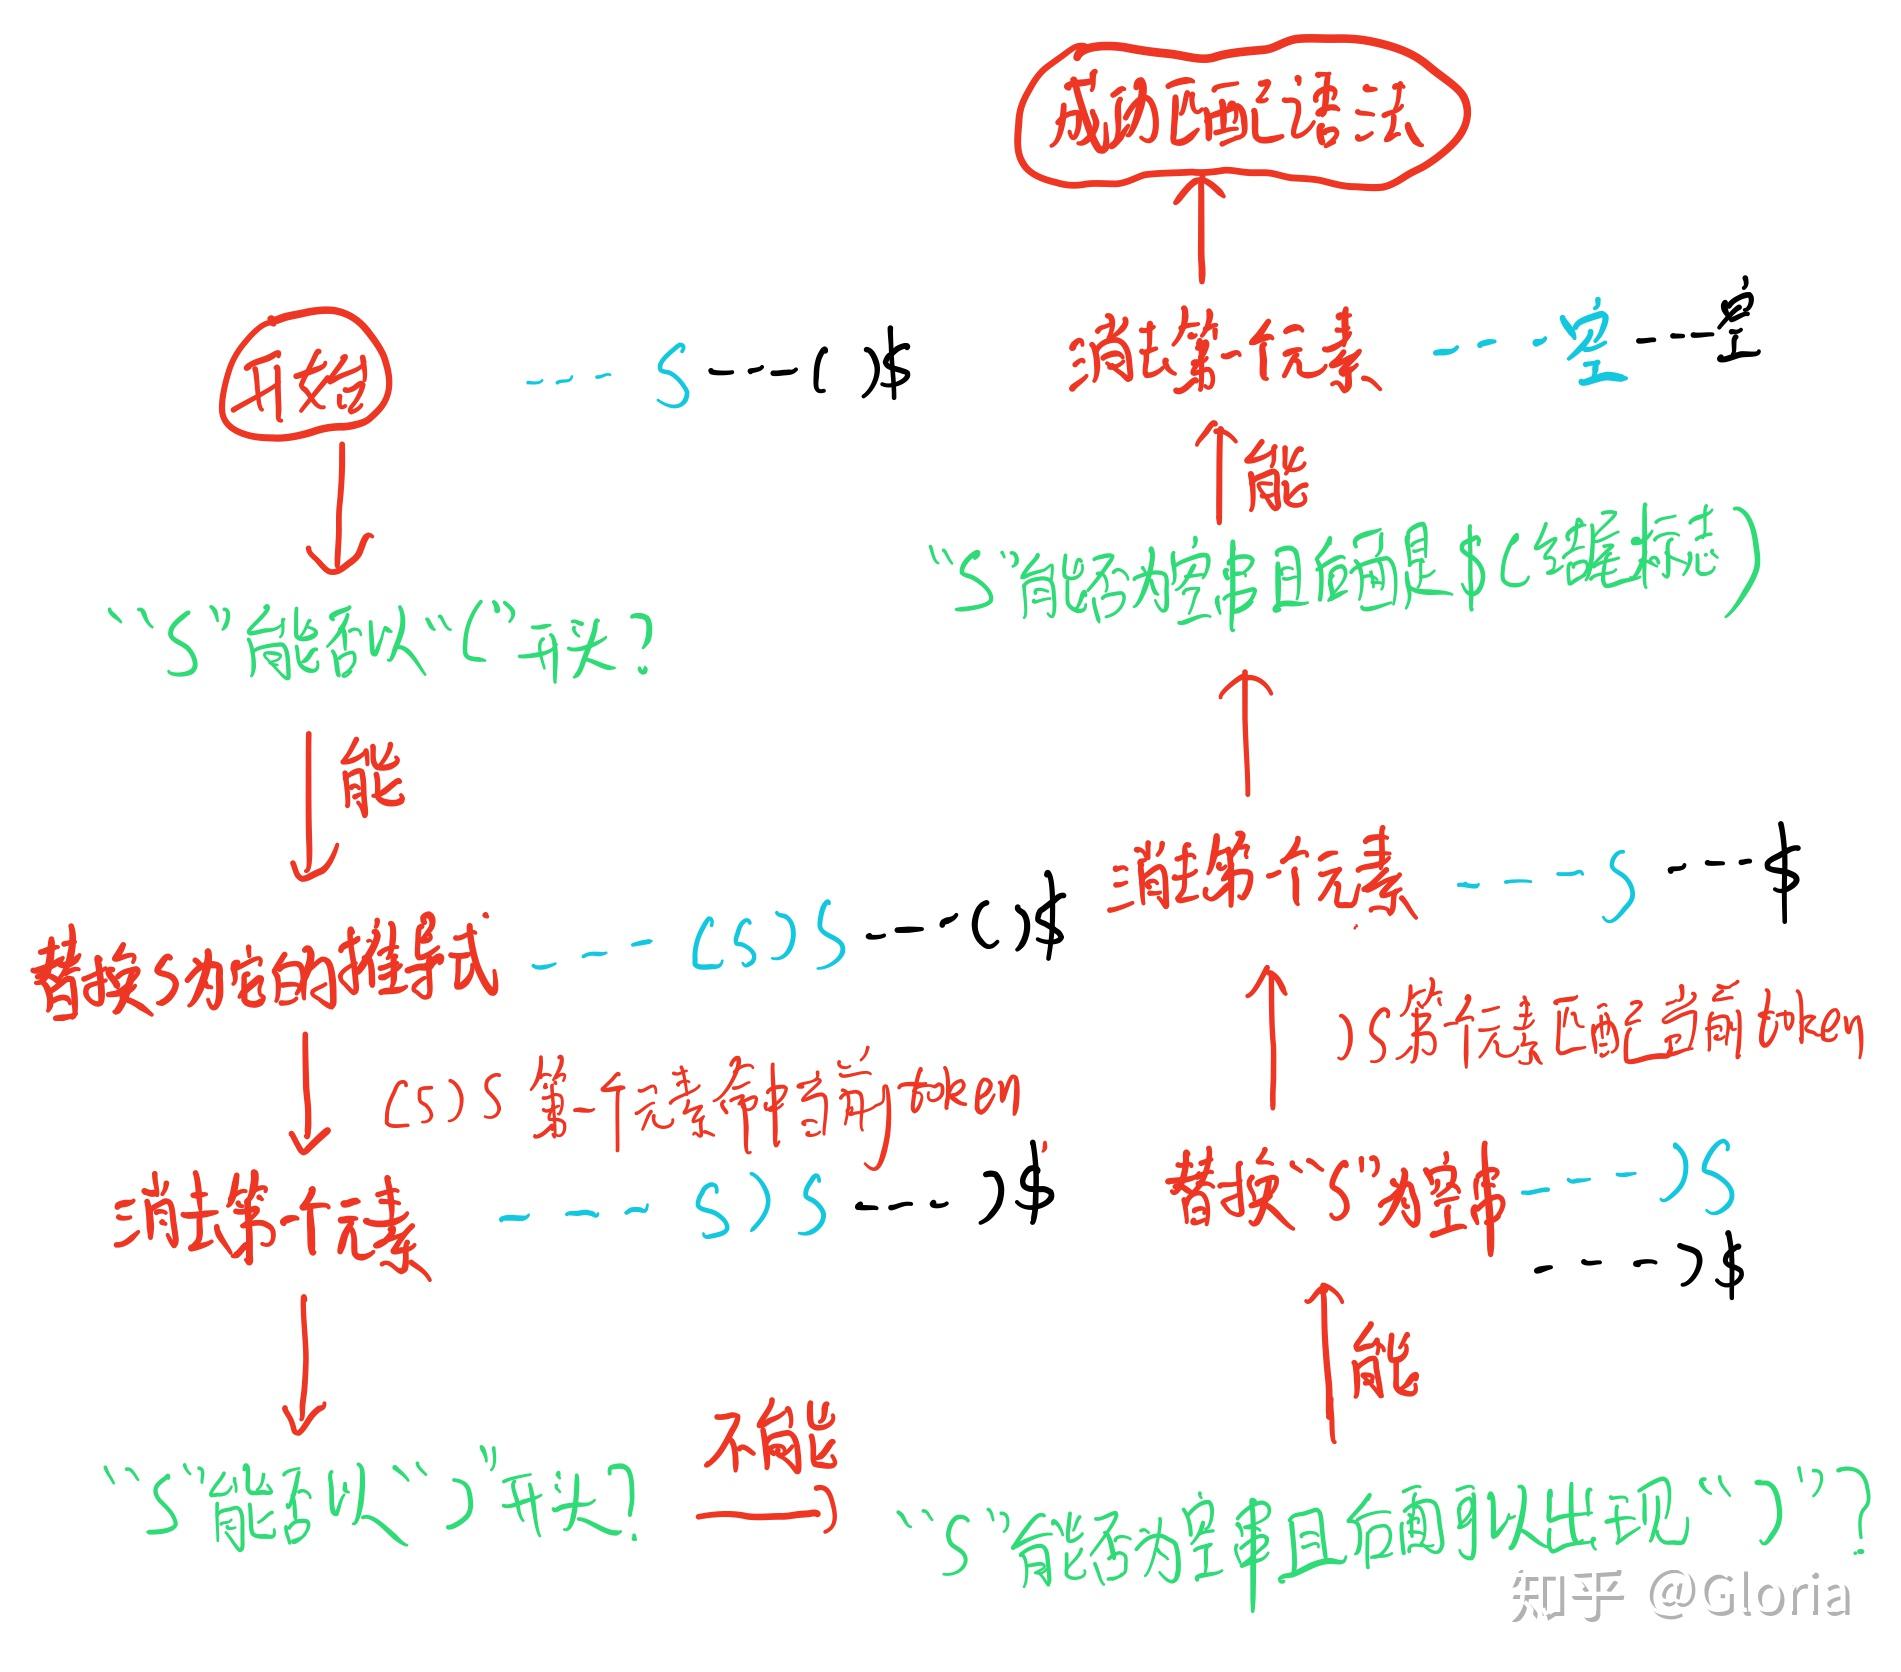 开始 --- S ---( )$
“S”能否以“(”开头？
能
替换S为它的推导式 --- (S)S ---()$
(S)S 第一个元素命中当前token
消去第一个元素 --- S)S ---)$
“S”能否以“)”开头？
不能
“S”能否为空串且后面可以出现“)”？
能
替换“S”为空串 ---)S
---)$
)S第一个元素匹配当前token
消去第一个元素 ---S ---$
“S”能否为空串且后面是$(结尾标志)
能
消去第一个元素 ---空 ---空
成功匹配语法
知乎 @Gloria